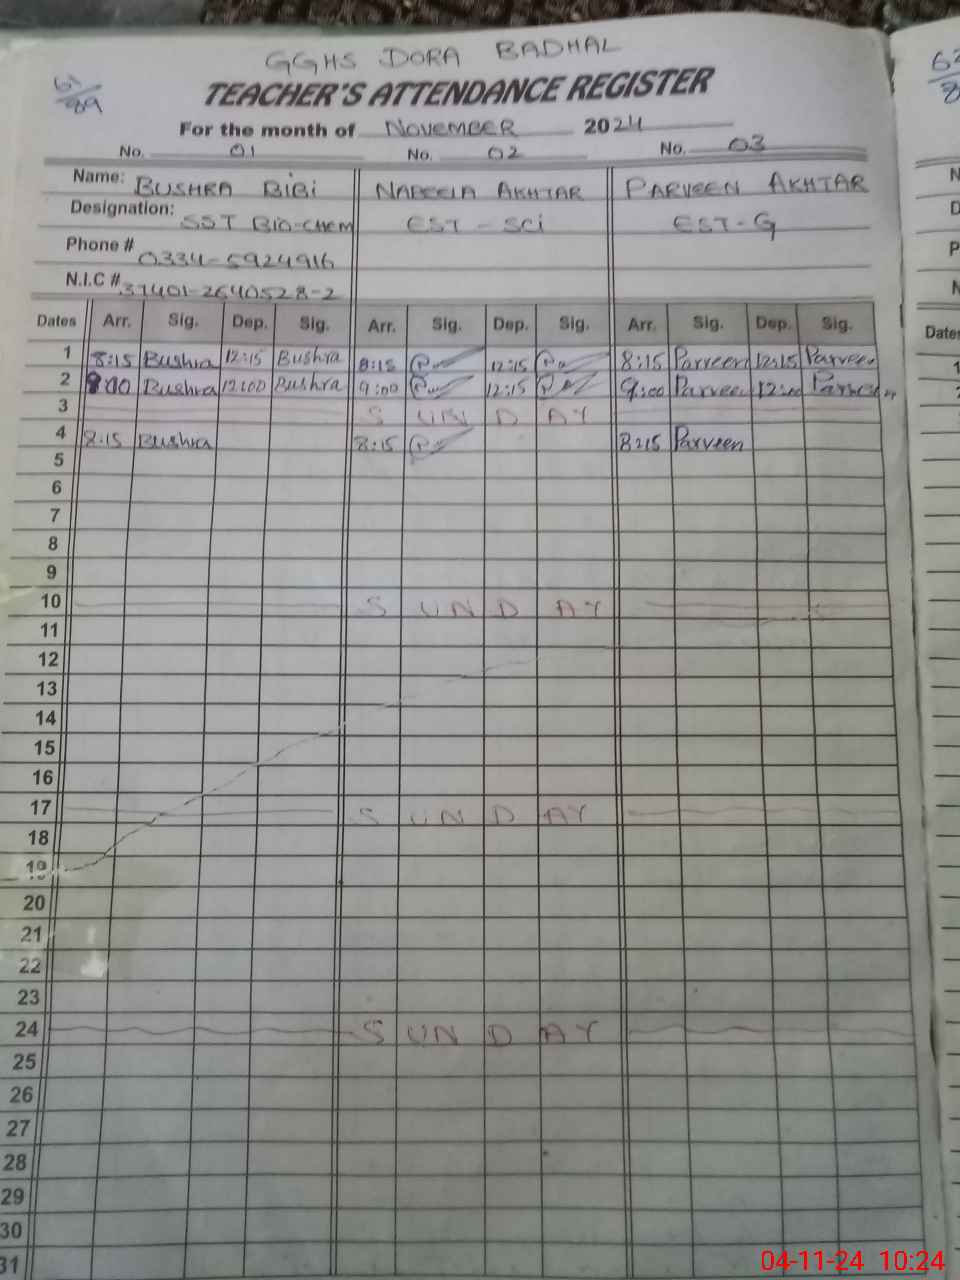 GGHS DORA BADHAL
61/89
TEACHER'S ATTENDANCE REGISTER
For the month of NOVEMBER 2024
No. 01 No. 02 No. 03
Name: BUSHRA BIBI NABEELA AKHTAR PARVEEN AKHTAR
Designation: SST BIO-CHEM EST - SCI EST-G
Phone # 0334-5924916
N.I.C # 37401-2640528-2
Dates Arr. Sig. Dep. Sig. Arr. Sig. Dep. Sig. Arr. Sig. Dep. Sig.
1 8:15 Bushra 12:15 Bushra 8:15 12:15 8:15 Parveen 12:15 Parveen
2 9:00 Bushra 12:00 Bushra 9:00 12:15 9:00 Parveen 12:00 Parveen
3 SUNDAY
4 8:15 Bushra 8:15 8:15 Parveen
5
6
7
8
9
10 SUNDAY
11
12
13
14
15
16
17 SUNDAY
18
19
20
21
22
23
24 SUNDAY
25
26
27
28
29
30
31
Dates
04-11-24 10:24